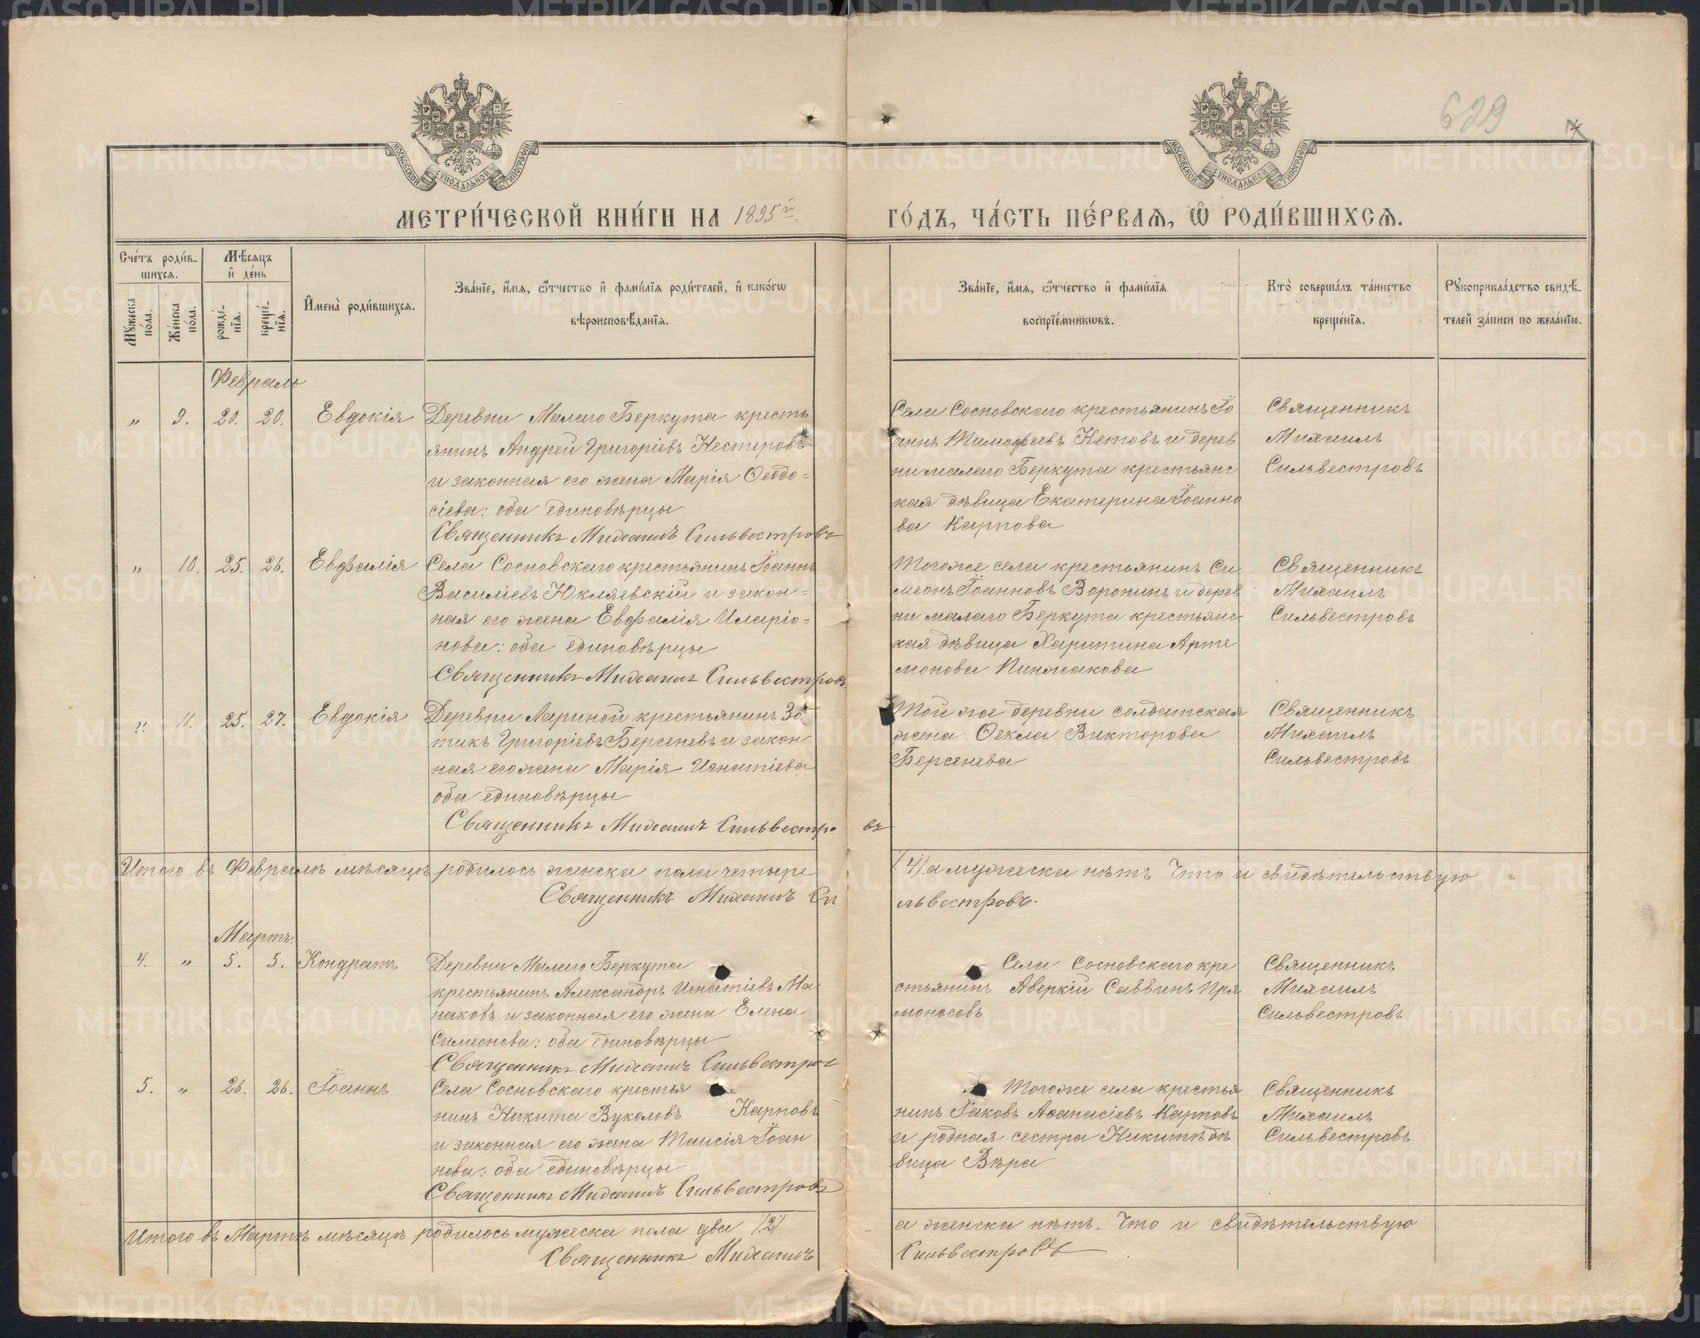 629
МОСКОВСКОЙ СУНОДАЛЬНОЙ ТИПОГРАФІИ
МОСКОВСКОЙ СУНОДАЛЬНОЙ ТИПОГРАФІИ
МЕТРИ́ЧЕСКОЙ КНИ́ГИ НА 1895й
ГО́ДЪ, ЧА́СТЬ ПЕ́РВАЯ, Ѽ РОДИ́ВШИХСЯ.
Сче́тъ роди́в-
шихся.
Мꙋжеска по́ла.
Же́нска по́ла.
Мѣ́сяцъ
и҆ де́нь
рожде́-
нїя.
креще́-
нїя.
И҆мена̀ роди́вшихся.
Зва́нїе, и҆́мя, ѻ҆́тчество и҆ фами́лїя роди́телей, и҆ како́гѡ
вѣроисповѣ́данїя.
Зва́нїе, и҆́мя, ѻ҆́тчество и҆ фами́лїя
воспрїе́мникѡвъ.
Кто̀ соверша́лъ та́инство
креще́нїя.
Рꙋкоприкла́дство свидѣ́-
телей за́писи по жела́нїю.
Февраль
„ 9. 20. 20. Евдокія
Деревни Малаго Беркута кресть
янинъ Андрей Григоріевъ Нестеровъ
и законная его жена Марія Ѳеодо=
сіева: оба единовѣрцы
Священникъ Михаилъ Сильвестровъ
Села Сосновскаго крестьянинъ Іо
аннъ Тимофеевъ Кетовъ и дерев
ни малаго Беркута крестьянс
кая дѣвица Екатерина Іоанно
ва Карпова
Священникъ
Михаилъ
Сильвестровъ
„ 10. 25. 26. Евфалія
Села Сосновскаго крестьянинъ Іоаннъ
Василіевъ Юкляевскій и закон=
ная его жена Евфалія Иларіо=
нова: оба единовѣрцы
Священникъ Михаилъ Сильвестровъ
Тогоже села крестьянинъ Си
меонъ Іоанновъ Воронинъ и дерев
ни малаго Беркута крестьянс
кая дѣвица Харитина Арте
монова Пинжакова
Священникъ
Михаилъ
Сильвестровъ
„ 11. 25. 27. Евдокія
Деревни Лариной крестьянинъ Зо
тикъ Григоріевъ Берсеневъ и закон
ная его жена Марія Игнатіева
оба единовѣрцы
Священникъ Михаилъ Сильвестровъ
Той же деревни солдатская
жена Ѳекла Викторова
Берсенева
Священникъ
Михаилъ
Сильвестровъ
Итого въ Февралѣ мѣсяцѣ родилось женска пола четыре
(4) а мужеска нѣтъ Что и свидѣтельствую
Священникъ Михаилъ Си
львестровъ.
Мартъ
4. „ 5. 5. Кондратъ
Деревни Малаго Беркута
крестьянинъ Александръ Игнатіевъ Ма
наковъ и законная его жена Елена
Симеонова: оба единовѣрцы
Священникъ Михаилъ Сильвестров
Села Сосновскаго кре
стьянинъ Аверкій Саввинъ Пря
моносовъ
Священникъ
Михаилъ
Сильвестровъ
5. „ 26. 26. Іоаннъ
Села Сосновскаго крестья
нинъ Никита Вуколовъ Карповъ
и законная его жена Таисія Іоан
нова: оба единовѣрцы
Священникъ Михаилъ Сильвестровъ
Тогоже села крестья
нинъ Іаковъ Аѳанасіевъ Карповъ
и родная сестра Никитѣ дѣ
вица Вѣра
Священникъ
Михаилъ
Сильвестровъ
Итого въ Мартѣ мѣсяцѣ родилось мужеска пола два (2)
а женска нѣтъ. Что и свидѣтельствую
Священникъ Михаилъ
Сильвестровъ
METRIKI.GASO-URAL.RU